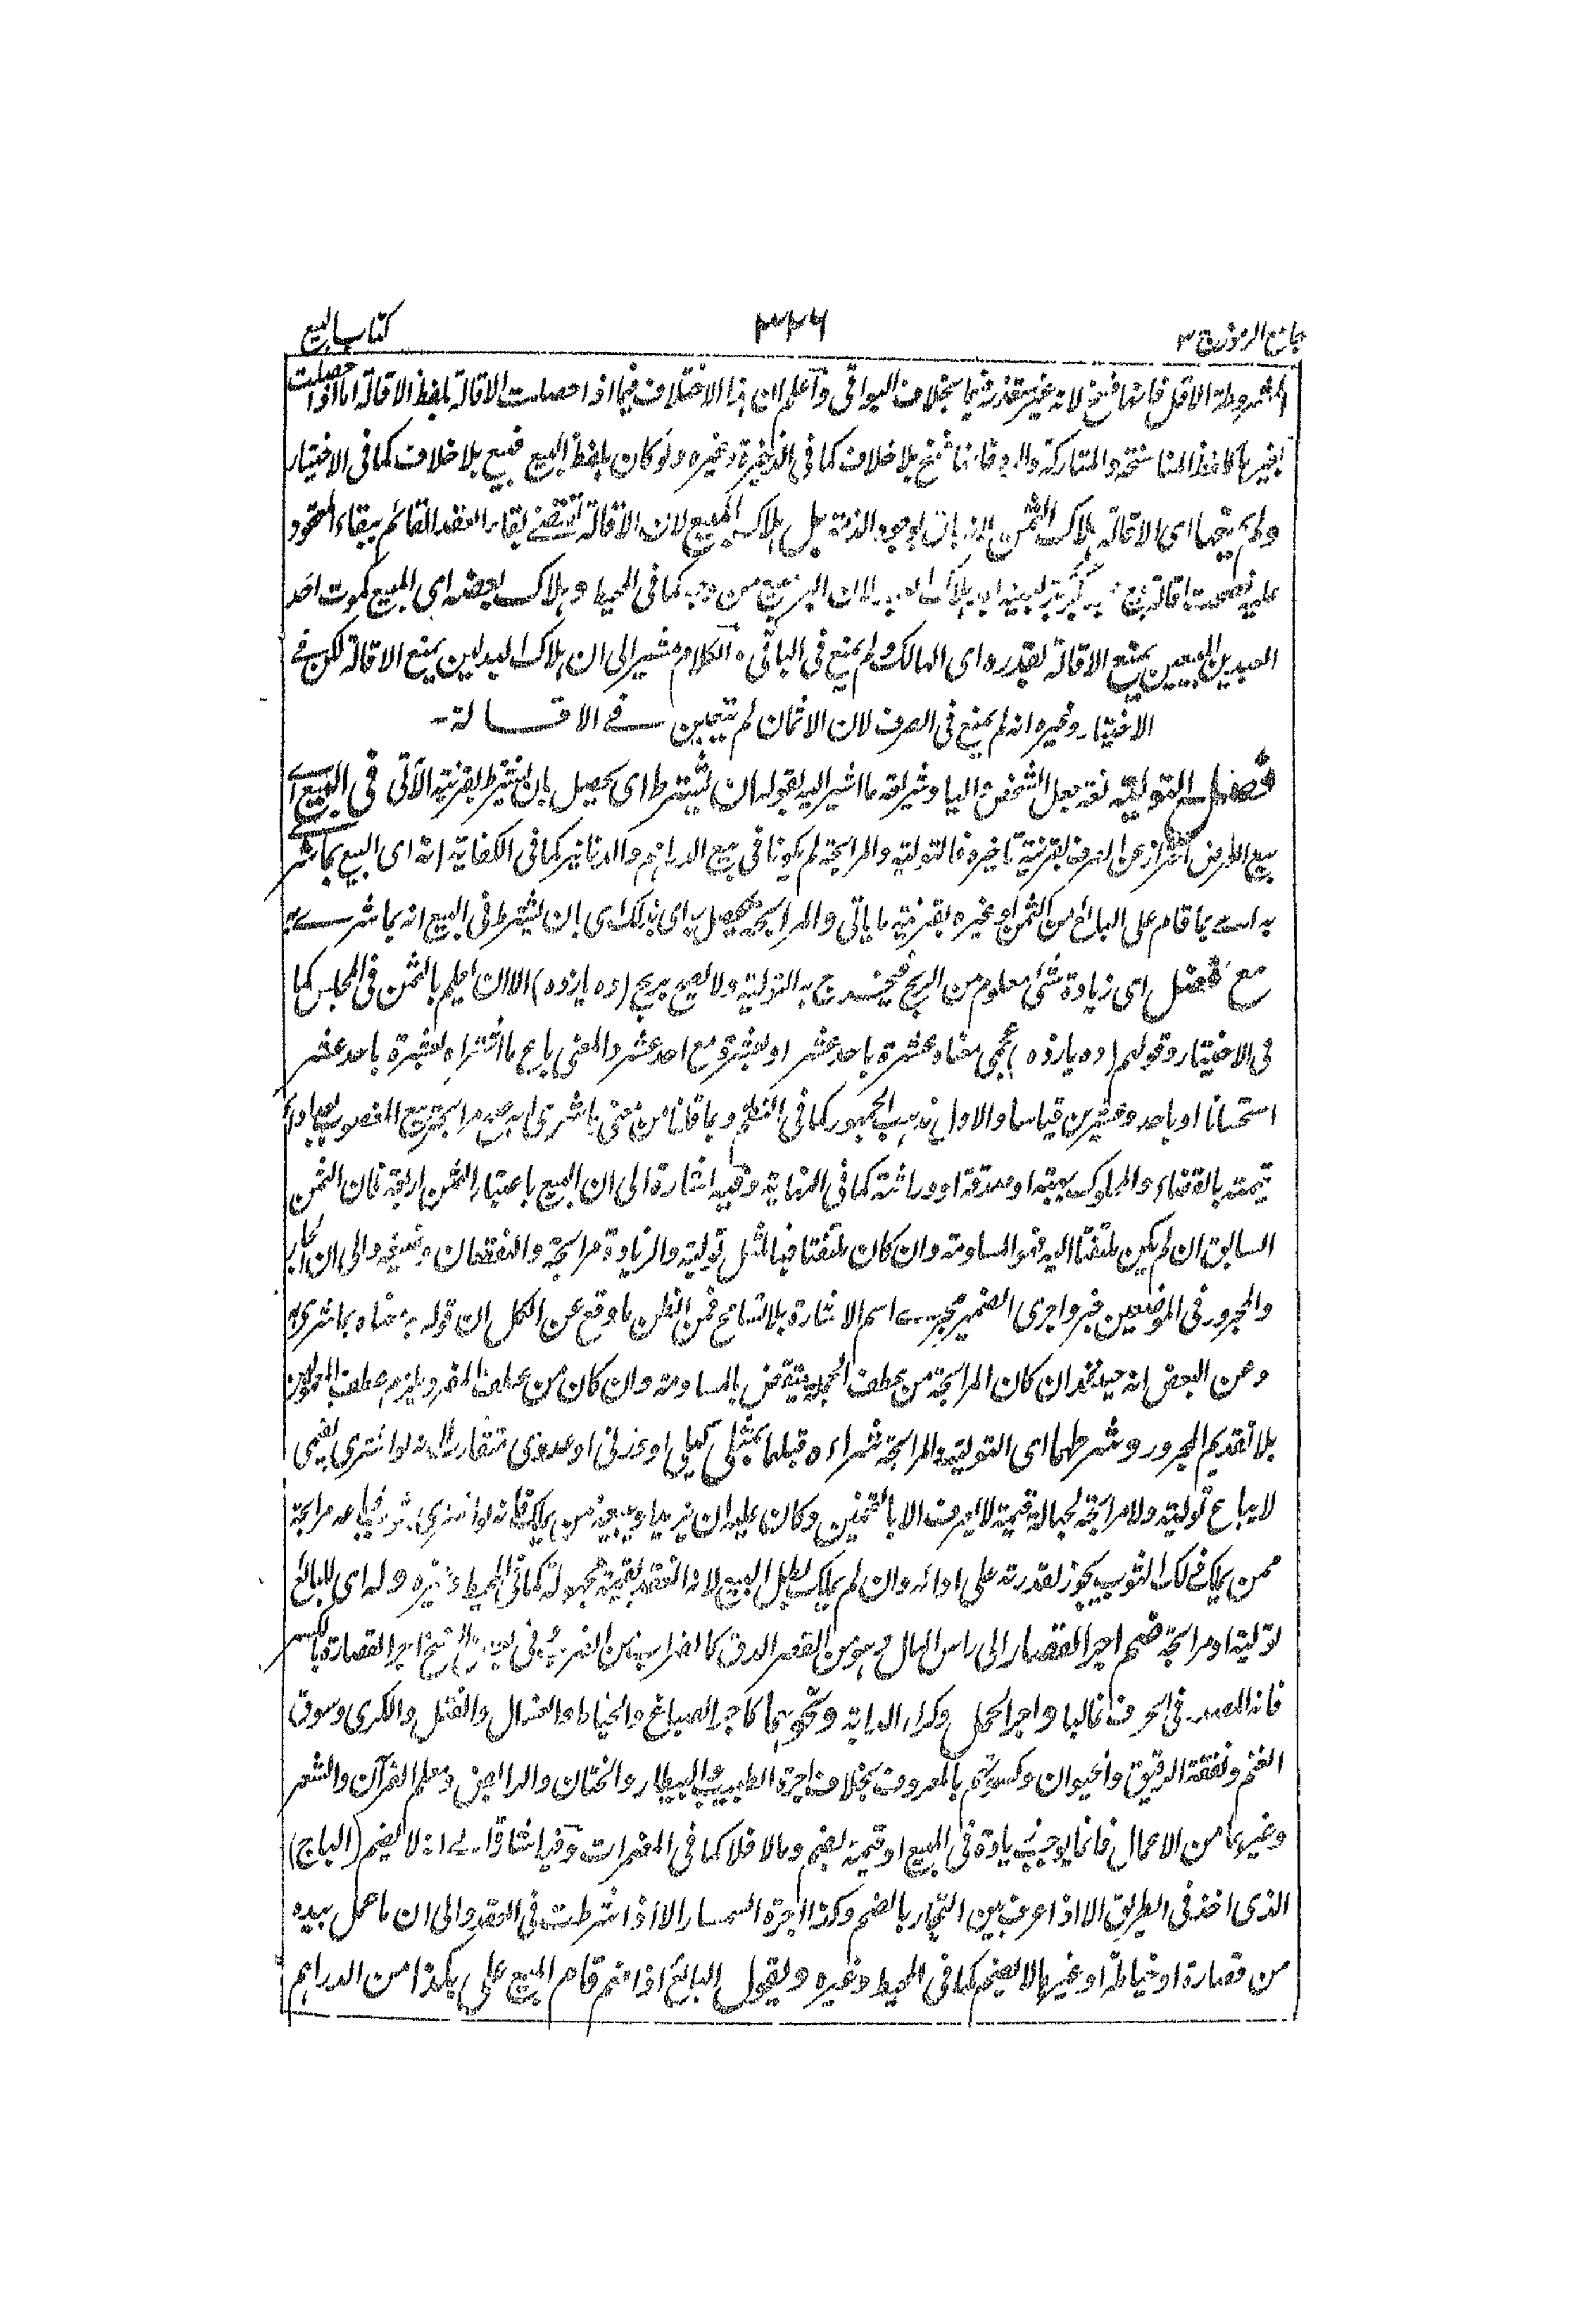 جامع الرموز ج ٣
٣٢٦
كتاب البيع
المشروطة الاقل فانها فسخ لانه غير متعذر فيها بخلاف البواقى وآعلم ان هذا الاختلاف فيما اذا حصلت الاقالة بلفظ الاقالة اما اذا حصلت
بغيرها كلفظ المفاسخة والمتاركة والرد فانها فسخ بلا خلاف كما فى الذخيرة وغيره ولو كان بلفظ البيع فبيع بلا خلاف كما فى الاختيار
ولم يمنعها اى الاقالة هلاك الثمن لوجود الذمة بل هلاك المبيع لان الاقالة تقتضے بقاء العقد القائم ببقاء المعقود
عليه لان البيع من وجه كما فى المحيط و هلاك بعضه اى المبيع كموت احد
العبدين المبيعين يمنع الاقالة بقدره اى الهالك ولم يمنع فى الباقى والكلام مشير الى ان هلاك البدلين يمنع الاقالة لكن فے
الاختيار وغيره انه لم يمنع فى الصرف لان الاثمان لم تتعين فے الاقالة ـ
فصل التولية لغة جعل الشخص واليا وشريعة ما اشير اليه بقوله ان يشترط اى يحصل بان يشترط بقرينة الآتى فى البيع اے
بيع العرض احتراز عن الصرف بقرينة تاخيره فالتولية والمرابحة لم يكونا فى بيع الدراهم والدنانير كما فى الكفاية انه اى البيع بما شرى
به اے بما قام على البائع من الثمن او غيره بقرينة ما ياتى والمرابحة يحصل به اى بذلك اى بان يشترط فى البيع انه بما شرے به
مع فضل اى زيادة شئ معلوم من الربح فيخرج به التولية ولا يصح بربح (ده يازده) الا ان يعلم بالثمن فى المجلس كما
فى الاختيار وقولهم (ده يازده) عجمى معناه عشرة باحد عشر او بعشرة مع احد عشر والمعنى بايع ما اشتراه بعشرة باحد عشر
استحسانا او باحد وعشرين قياسا والاول مذهب الجمهور كما فى النظم وبما قلنا من معنى ما شرى به صح مرابحة بيع المغصوب بعد اداء
قيمته بالقضاء والمملوك بهبة او صدقة او وراثة كما فى النهاية وفيه اشارة الى ان البيع باعتبار الثمن اربعة فان الثمن
السابق ان لم يكن ملتفتا اليه فهو المساومة وان كان ملتفتا فبالمثل تولية والزيادة مرابحة والنقصان وضيعة والى ان الجار
والمجرور فى الموضعين خبر واجرى الضمير مجرى اسم الاشارة بلا تسامح فمن الظن ما وقع عن الكل ان قوله به معناه بما شرى به
وعن البعض انه حينئذ ان كان المرابحة من عطف الجملة ينتقض بالمساومة وان كان من عطف المفرد يلزم عطف المعمولين
بلا تقديم المجرور وشرطهما اى التولية والمرابحة شراءه قبلهما بمثلى كيلى او وزنى او عددى متقارب لانه لو اشترى بقيمى
لا يباع تولية ولا مرابحة لجهالة قيمة لا يعرف الا بالتخمين وكان عليه ان يزيد او يبيعه من يملكه فانه لو اشترى بثوب فباعه مرابحة
ممن يملك ذلك الثوب يجوز لقدرته على ادائه وان لم يملك بطل البيع لانه انعقد بقيمة مجهولة كما فى المحيط وغيره وله اى للبائع
تولية او مرابحة ضم اجر القصار الى راس المال وهو من القصر الدق كالضراب من الضرب وفى بعض النسخ اجر القصارة بالكسر
فانه المصدر فى الحرف غالبا واجر الحمل وكراء الدابة ونحوهما كاجر الصباغ والخياط والغسال والفتل والكرى وسوق
الغنم ونفقة الرقيق والحيوان وكسوتهم بالمعروف بخلاف اجرة الطبيب والبيطار والختان والرائض ومعلم القرآن والشعر
وغيرهما من الاعمال فانما يوجب زيادة فى المبيع او قيمته يضم ومالا فلا كما فى المضمرات وفيه اشارة الى انه لا يضم (الباج)
الذى اخذ فى الطريق الا اذا عرف بين التجار بالضم وكذا اجرة السمسار الا اذا شرطت فى العقد والى ان ما عمل بيده
من قصارة او خياطة او غيرها لا يضم كما فى المحيط وغيره ويقول البائع اذا ضم قام المبيع على بكذا من الدراهم